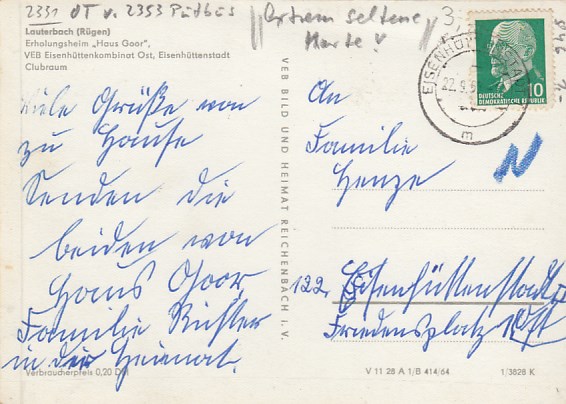 2331 OT v. 2353 Putbus
Extrem seltene
Marke!
3,
Lauterbach (Rügen)
Erholungsheim „Haus Goor",
VEB Eisenhüttenkombinat Ost, Eisenhüttenstadt
Clubraum
Viele Grüße von
zu Hause
Senden die
beiden von
Haus Goor
Familie Richter
in der Heimat.
Verbraucherpreis 0,20 DM
VEB BILD UND HEIMAT REICHENBACH i. V.
EISENHÜTTENSTADT
22.9.
m
10
DEUTSCHE
DEMOKRATISCHE REPUBLIK
An
Familie
Henze
N
122 Eisenhüttenstadt
Friedensplatz
V 11 28 A 1/B 414/64
1/3828 K